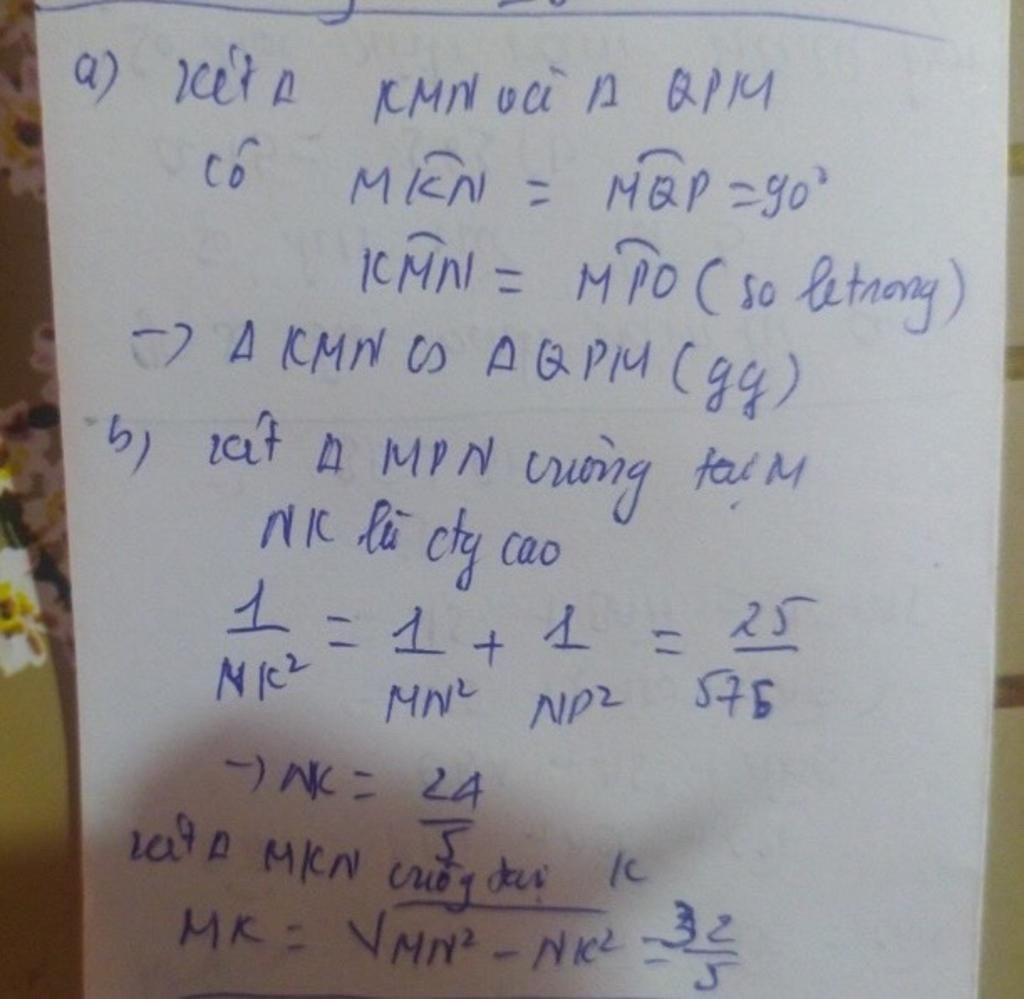 a) Xét Δ KMN và Δ QPM
có MKN = MQP = 90°
KMN = MPQ (so le trong)
→ Δ KMN ∽ Δ QPM (gg)
b) Xét Δ MPN vuông tại M
NK là đg cao
1/NK² = 1/MN² + 1/NP² = 25/576
→ NK = 24/5
Xét Δ MKN vuông tại K
MK = √MN² - NK² = 32/5